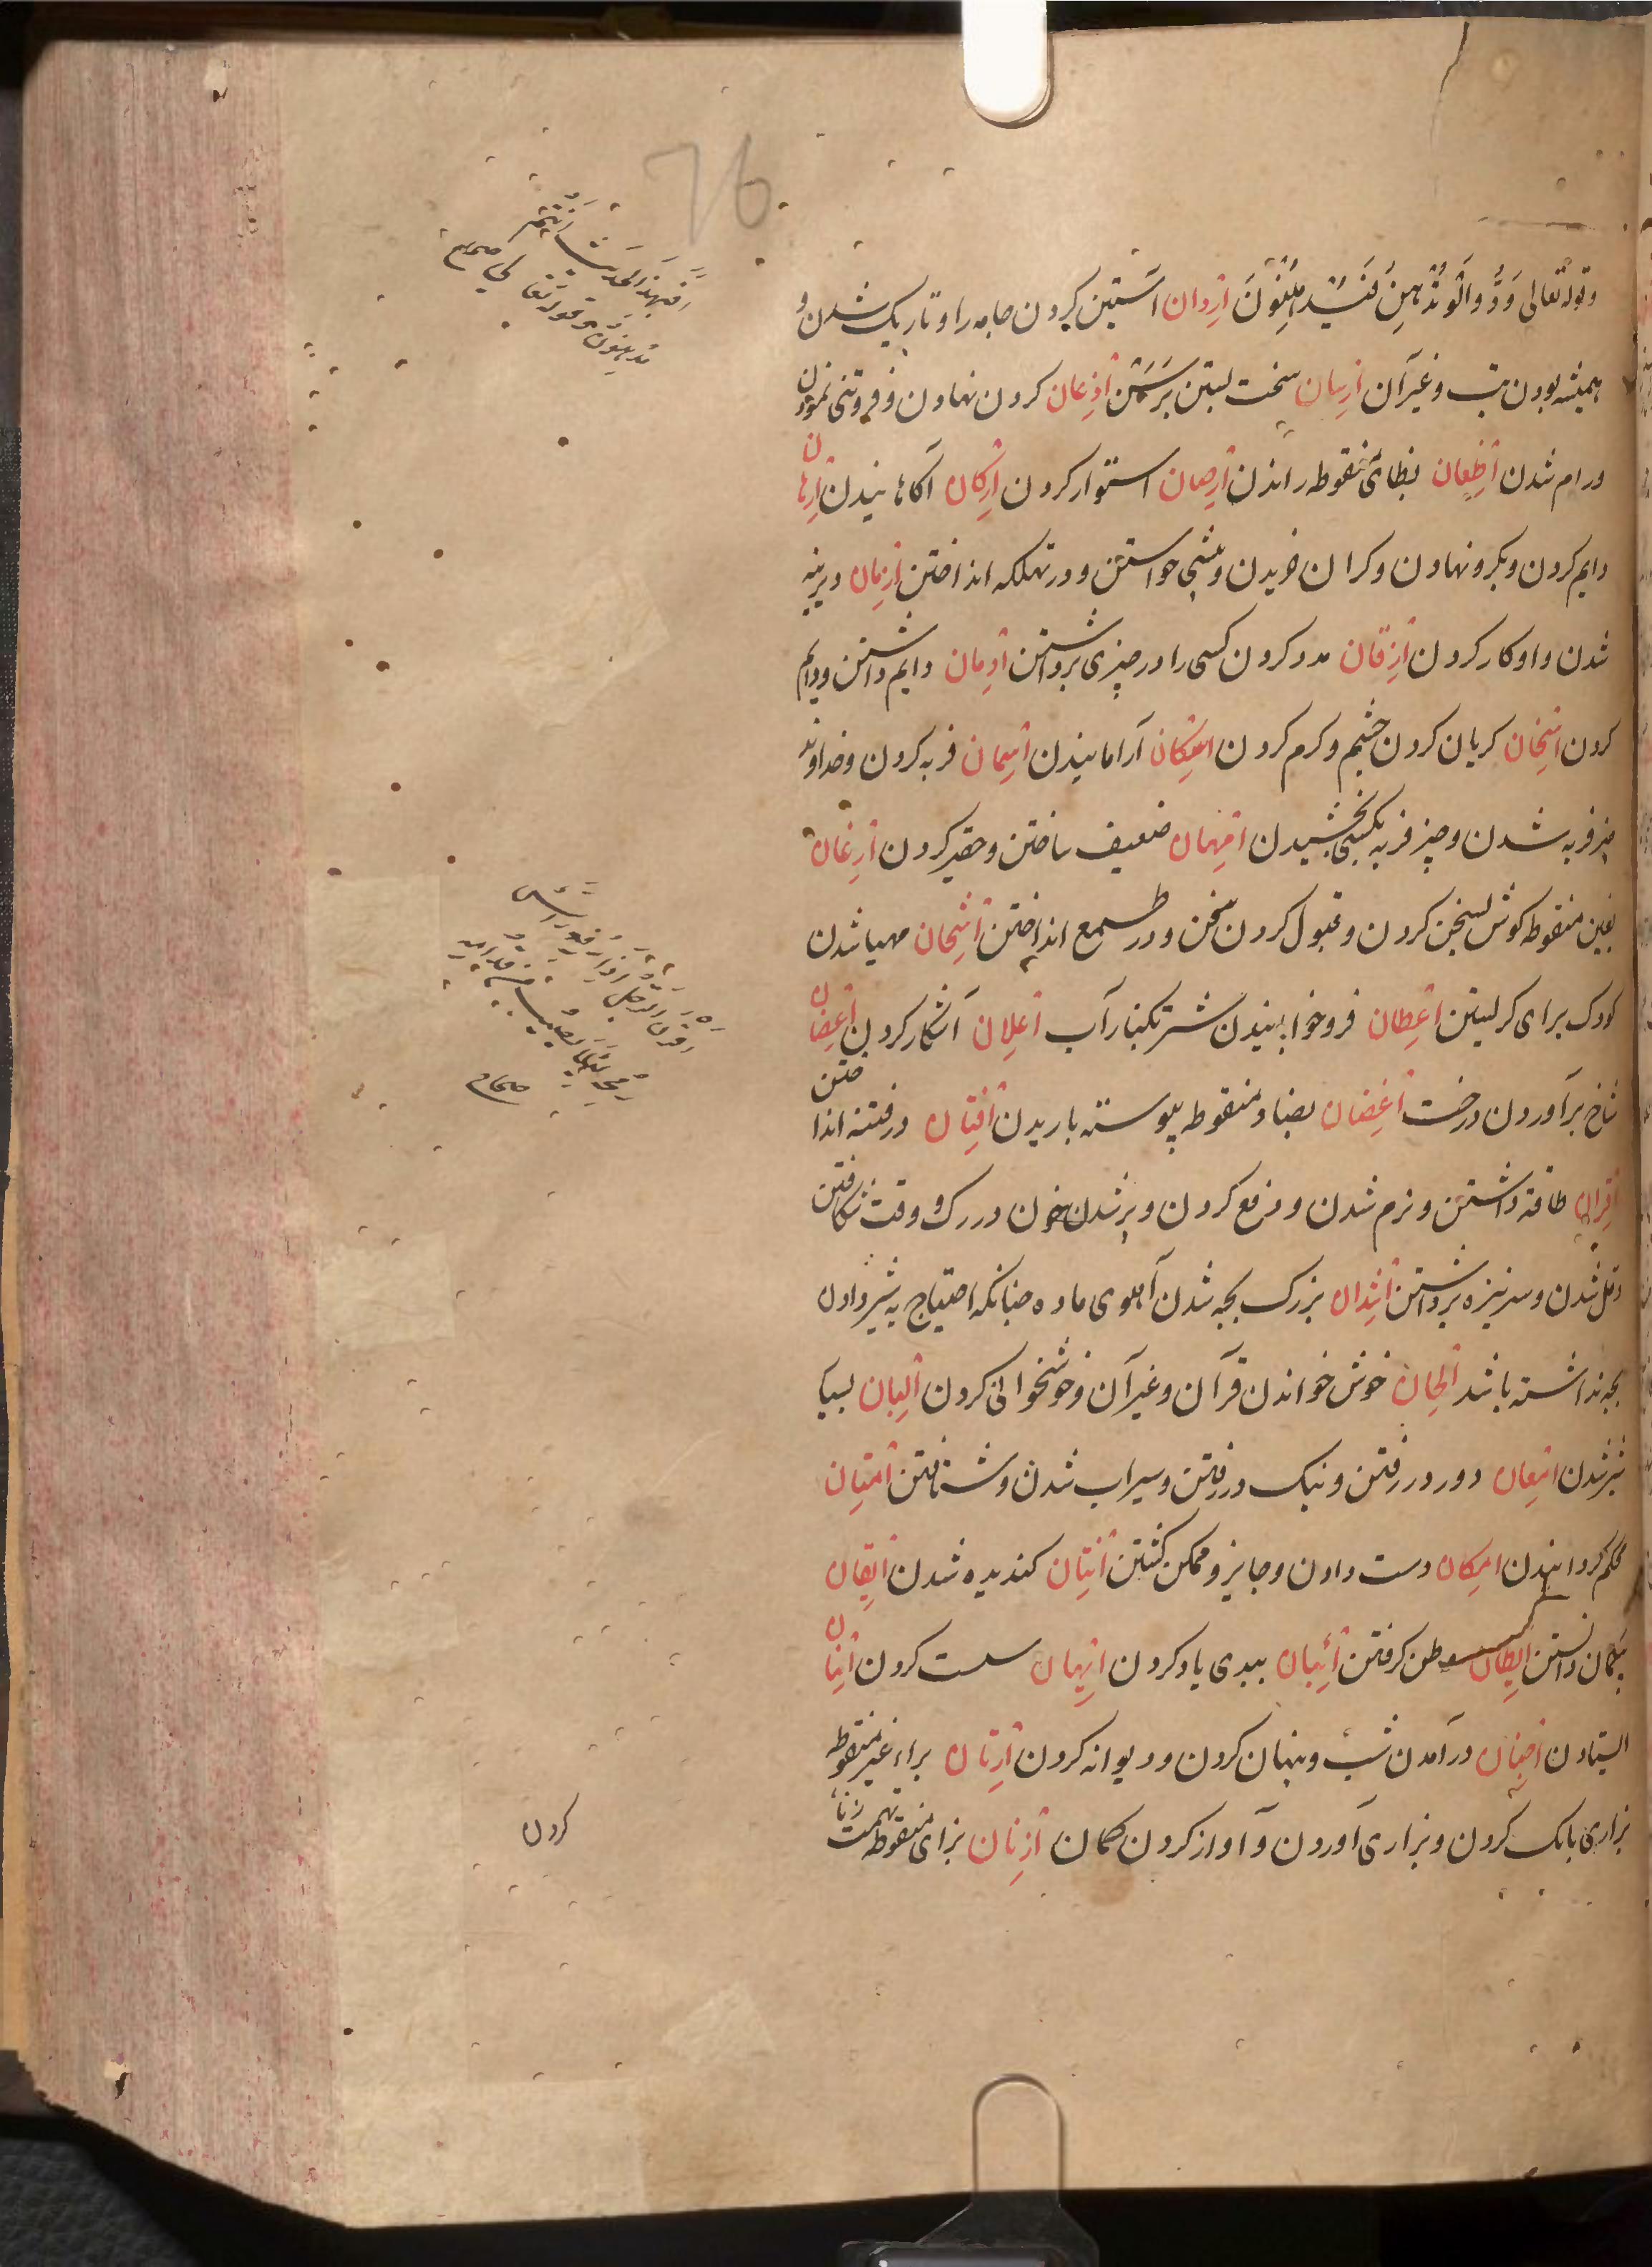 76
وقوله تعالی وَدُّوا لَوْ تُدْهِنُ فَیُدْهِنُونَ اردان آستین کردن جامه را و تاریک شدن و
همیشه بودن تب و غیر آن ارسان سخت بستن برسن اذعان کردن نهادن و فروتنی نمودن
و رام شدن اظعان بظای منقوطه راندن ارصان استوار کردن ازکان آکاهانیدن ارهان
دایم کردن و بکرو نهادن و کران خریدن و پیشی خواستن و در تهلکه انداختن ازمان دیرینه
شدن و اوکار کردن ازقان مدد کردن کسی را در چیزی برداشتن ادمان دایم داشتن و دایم
کردن اسخان کریان کردن چشم و کرم کردن اسکان آرامانیدن اسمان فربه کردن و خداوند
چیز فربه شدن و چیز فربه بکسی بخشیدن امهان ضعیف ساختن و حقیر کردن ارغان
بغین منقوطه کوش بسخن کردن و قبول کردن سخن و در طمع انداختن اشحان مهیا شدن
کودک برای کریستن اعطان فروخوابانیدن شتر بکنار آب اعلان آشکار کردن اغصان
شاخ برآوردن درخت اغضان بضاد منقوطه پیوسته باریدن افتان در فتنه انداختن
اقران طاقة داشتن و نرم شدن و رفع کردن و پر شدن خون در رک و وقت شکافتن
دمل شدن و سر نیزه برداشتن اشدان بزرک بچه شدن آهوی ماده چنانکه احتیاج به شیر دادن
بچه نداشته باشد الحان خوش خواندن قرآن و غیر آن و خوشخوانی کردن البان بسیار
شیر شدن امعان دور در رفتن و نیک در رفتن و سیراب شدن و شتافتن امتان
محکم کردانیدن امکان دست دادن و جایز و ممکن کشتن انتان کندیده شدن ایقان
بیکمان دانستن ایطان وطن کرفتن ائبان ببدی یاد کردن ایهان سست کردن ابنان
ایستادن اجنان درآمدن شب و پنهان کردن و دیوانه کردن ارنان براء غیر منقوطه
بزاری بانک کردن و بزاری آوردن و آواز کردن کمان ازنان بزای منقوطه تهمت زنا
کردن
افبهذا الحدیث انتم
مدهنون و قوله تعالی صحاح
اقرن الرجل اذا رفع راس
رمحه لئلا یصیب من قدامه
صحاح